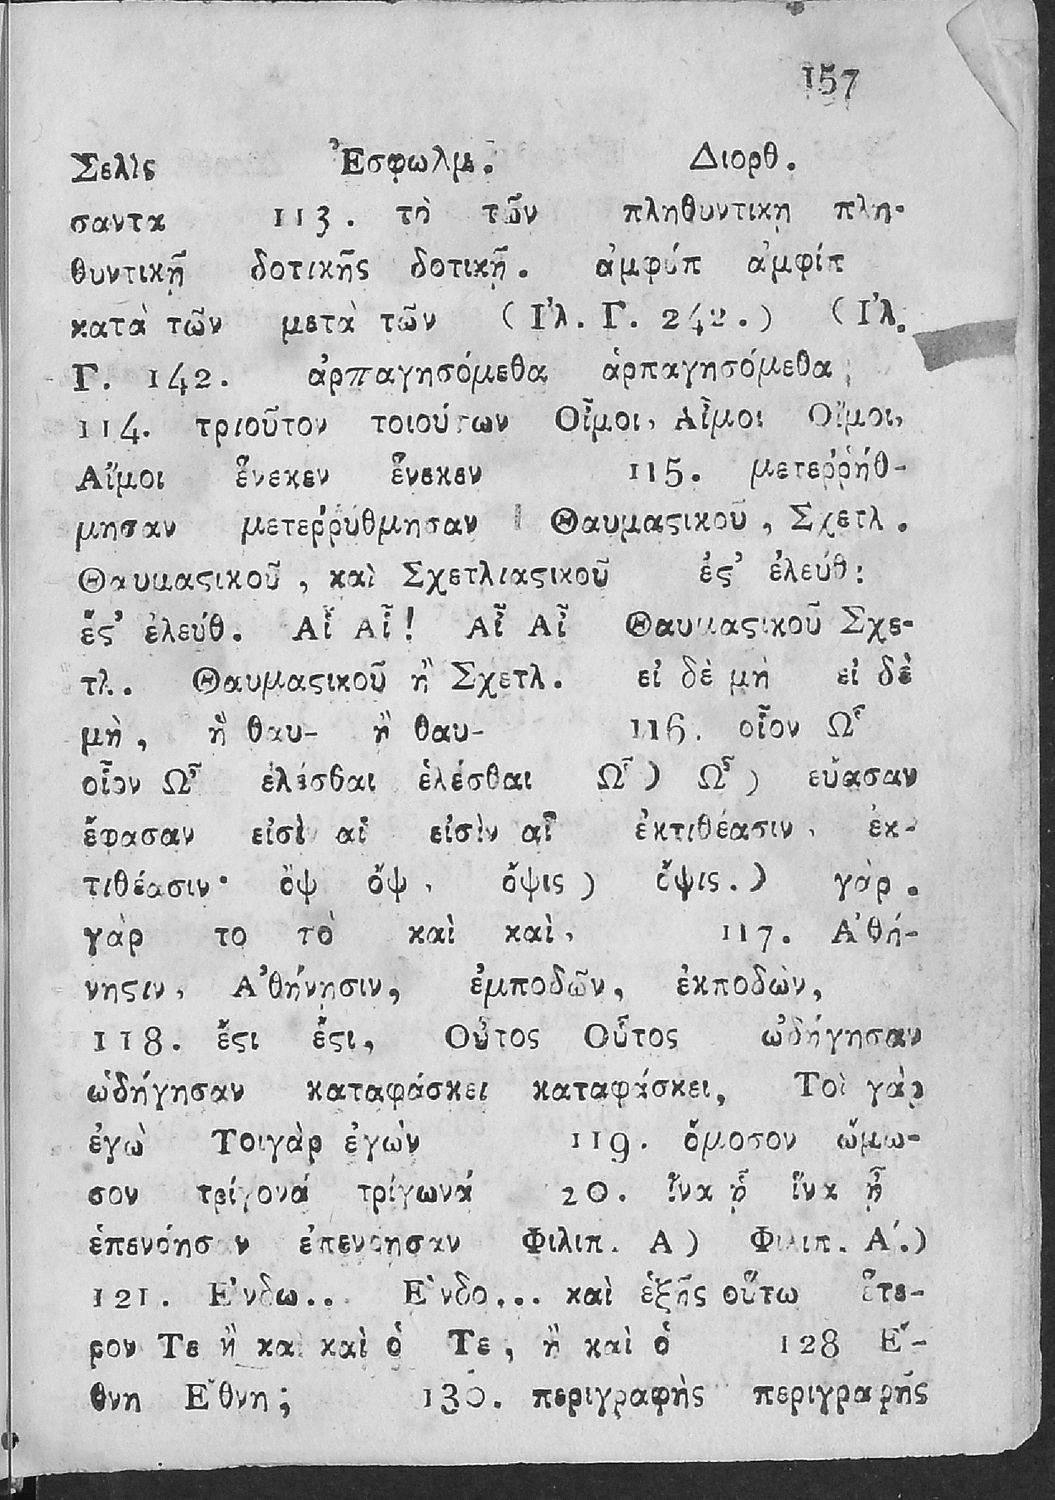 157
Σελὶς Ἐσφωλμ. Διορθ.
σαντα 113. τὴ τῶν πληθυντικη πλη-
θυντικῇ δοτικῆς δοτικῇ. ἀμφύπ ἀμφίπ
κατὰ τῶν μετὰ τῶν (Ἰλ. Γ. 242.) (Ἰλ.
Γ. 142. ἀρπαγησόμεθα ἁρπαγησόμεθα
114. τριοῦτον τοιούτων Οἶμοι, Αἶμοι Οἴμοι,
Αἴμοι ἕνεκεν ἕνεκεν 115. μετεῤῥήθ-
μησαν μετεῤῥύθμησαν Θαυμαϛικοῦ, Σχετλ.
Θαυμαϛικοῦ, καὶ Σχετλιαϛικοῦ ἐϛ' ἐλεύθ:
ἔϛ' ἐλεύθ. Αἶ Αἶ! Αἶ Αἶ Θαυμαϛικοῦ Σχε-
τλ. Θαυμαϛικοῦ ἢ Σχετλ. εἰ δὲ μὴ εἰ δὲ
μὴ, ἢ θαυ- ἢ θαυ- 116. οἷον Ὦ
οἷον Ὦ ἐλέσθαι ἑλέσθαι Ὦ) Ὦ) εὔασαν
ἔφασαν εἰσὶ αἱ εἰσὶν αἱ ἐκτιθέασιν, ἐκ-
τιθέασιν· ὄψ ὄψ, ὄψις) ὄψις.) γὰρ.
γὰρ το τὸ καὶ καὶ, 117. Ἀθή-
νηϛιν, Ἀθήνησιν, ἐμποδῶν, ἐκποδὼν,
118. ἔϛι ἔϛι, Οὗτος Οὗτος ὠδήγησαν
ὡδήγησαν καταφάσκει καταφάσκει, Τοὶ γὰρ
ἐγὼ Τοιγὰρ ἐγών 119. ὄμοσον ὤμω-
σον τρίγονά τρίγωνά 20. ἵνα ᾖ ἵνα ᾖ
ἐπενόησαν ἐπενόησαν Φιλιπ. Α) Φιλιπ. Α΄.)
121. Ἐνδω... Ἐνδο... καὶ ἑξῆς οὕτω ἕτε-
ρον Τε ἢ και καὶ ὁ Τε, ἢ καὶ ὁ 128 Ἔ-
θνη Ἔθνη; 130. περιγραφὴς περιγραφῆς